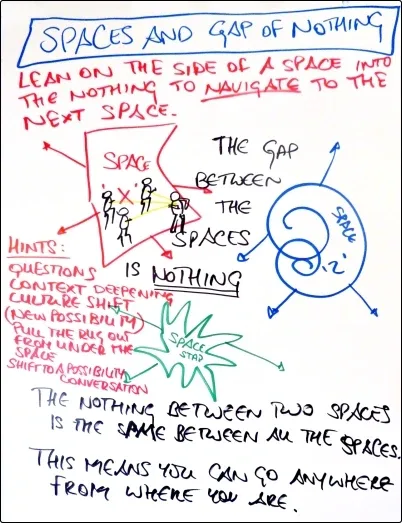 SPACES AND GAP OF NOTHING
LEAN ON THE SIDE OF A SPACE INTO
THE NOTHING TO NAVIGATE TO THE
NEXT SPACE.
SPACE
"X"
THE GAP
BETWEEN
THE
SPACES
IS NOTHING
SPACE
"Z"
HINTS:
QUESTIONS
CONTEXT DEEPENING
CULTURE SHIFT
(NEW POSSIBILITY)
PULL THE RUG OUT
FROM UNDER THE
SPACE
SHIFT TO A POSSIBILITY
CONVERSATION
SPACE
STAR
THE NOTHING BETWEEN TWO SPACES
IS THE SAME BETWEEN ALL THE SPACES.
THIS MEANS YOU CAN GO ANYWHERE
FROM WHERE YOU ARE.